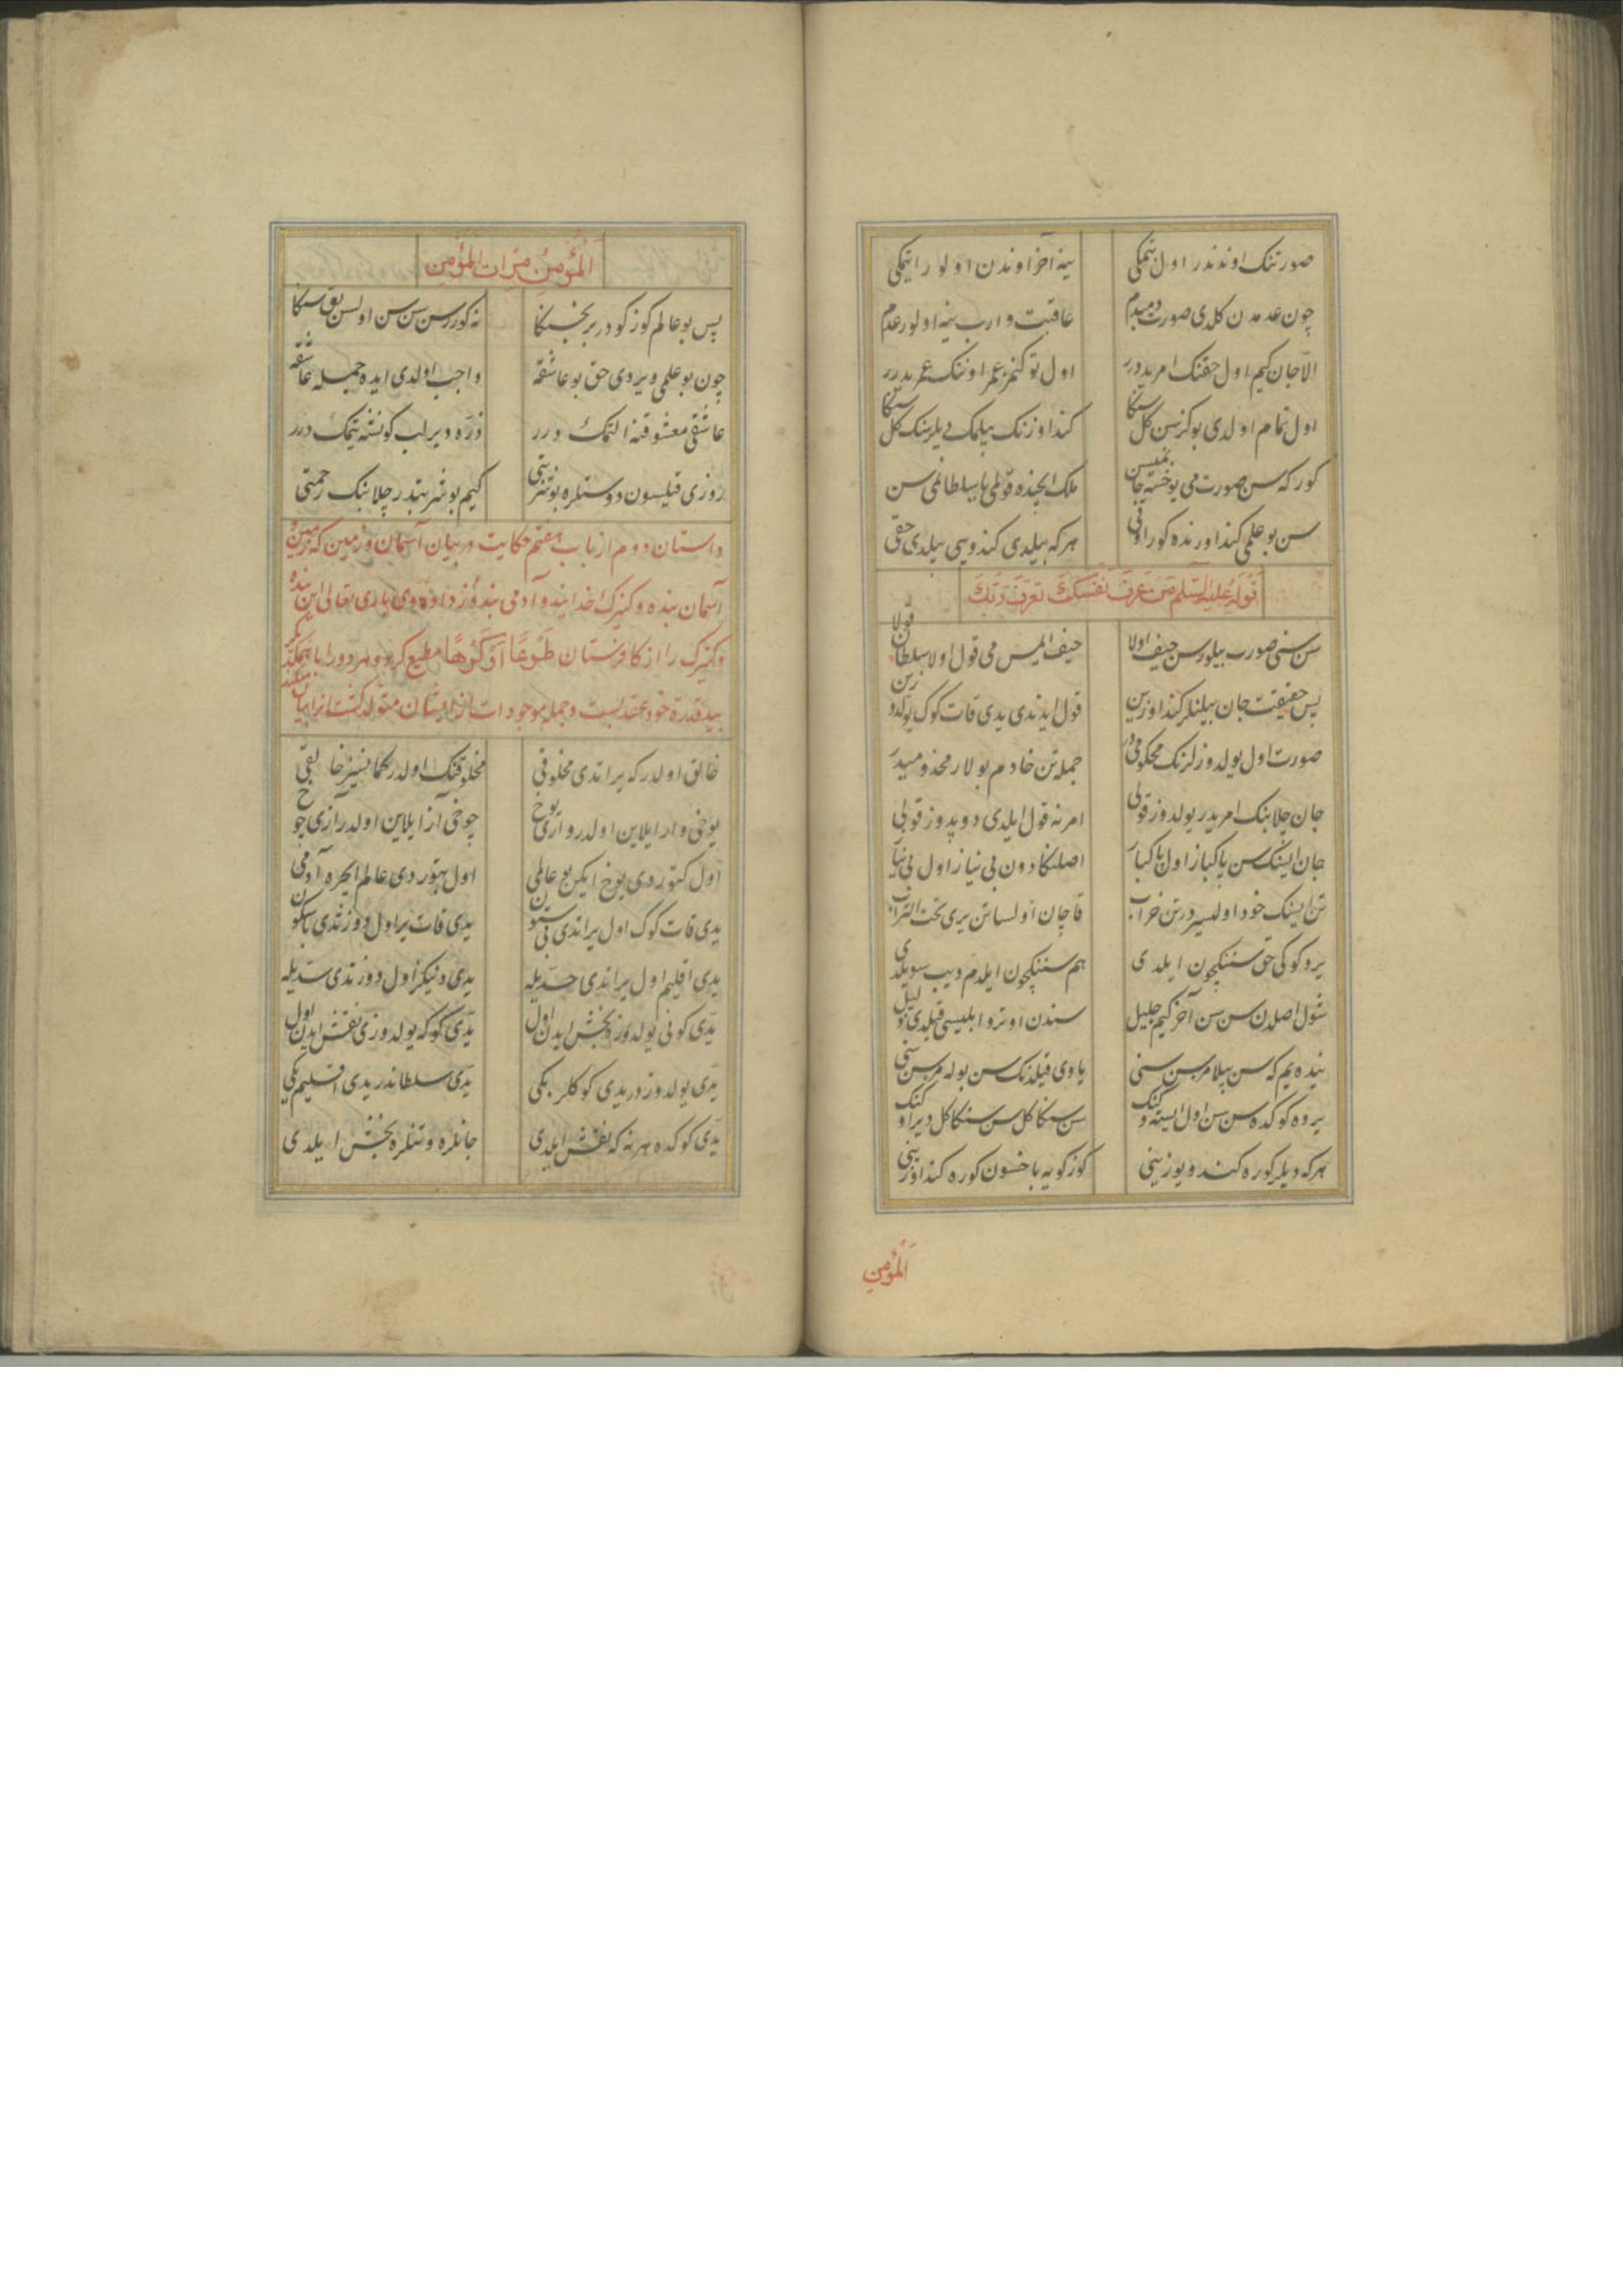 صورتنک اوندندر اول یتمکی ینه آخر اوندن اولور ایتمکی
چون عدمدن کلدی صورت دمبدم عاقبت وارب ینه اولور عدم
الا جان کیم اول حقنک امریدرر اول توکنمز عمر اوننک عمریدرر
اول تمام اولدی بو کز سن کل سنکا کند اوزنک بیلمک دیلرسنک کل سنکا
کور که سن صورت می یوخسه جان میسن ملک ایچنده قولمی یا سلطانمی سن
سن بو علمی کند اوزنده کور اوقی هر که بیلدی کندوسی بیلدی حقی
قوله علیه السلم من عرف نفسک تعرف ربک
سن سنی صورت بیلورسن حیف اولا حیف ایمس می قول اولا سلطان قولا
پس حقیقت جان بیلنلر کند اوزین قول ایدندی یدی قات کوک
صورت اول یولدوزلرنک محکومی در جمله تن خادم بولار مخدومیدر
جان چلابنک امریدر یولدوز قولی امرنه قول ایلدی دوپدوز قولی
جان اینک سن پاکباز اول پاکباز اصلنکا دون بی نیاز اول بی نیاز
تن اینک خود اولیسردر تن خراب قاچان اولسا تن یری تحت التراب
یر و کوکی حق سننکچون ایلدی هم سننکچون ایلدم دیب سویلدی
شول اصلدن سن سن آخر کیم جلیل سندن اوترو ابلیسی قیلدی ذلیل
نیده یم که سن بیلامزسن سنی یاوی قیلدنک سن بوله مزسن سنی
یرده کوکده سن سن اول ایسته سن سنکا کل سن سنکا کل
هر که دیلر کوره کندو یوزینی کوزکویه باخسون کوره کند اوزینی
المؤمن
المؤمن مرات المؤمن
پس بو عالم کوزکودر بر بخسنکا نه کوررسن سن سن اولسن بق سنکا
چون بو علمی ویردی حق بو عاشقه واجب اولدی ایده جمله عاشقه
عاشقی معشوقنه التمک درر ذره ویرلب کونشه یتمک درر
روزی قیلسون دوستلره بو شربتی کیم بو شربتدر چلابنک رحمتی
داستان دوم از باب هفتم حکایت در بیان آسمان و زمین که زمین و
آسمان بنده و کنیزک خدایند و آدمی بنده زاده وی باری تعالی این بنده
و کنیزک را از کافرستان طوعا او کرها مطیع کرد و هر دو را با یکدیکر
بید قدرة خود عقد بست و جمله موجودات از ایشان متولد کشت
خالق اولدر که یراتدی مخلوقی مخلوقنک اولدر کمانسیز خالقی
یوخی وار ایلاین اولدر واری یوخ چوخی آز ایلاین اولدر آزی چوخ
اول کتوردی یوخ ایکن بو عالمی اول بتوردی عالم ایچره آدمی
یدی قات کوک اول یراتدی بی ستون یدی قات یر اول دوزتدی
یدی اقلیم اول یراتدی حدیله یدی دنیکز اول دوزتدی سدیله
یدی کونی یولدوزه بخش ایدن اول یدی کوکه یولدوزی نقش ایدن اول
یدی یولدوز در یدی کوکلر بکی یدی سلطاندر یدی اقلیم بکی
یدی کوکده هر نه که نقش ایلدی جانلره و تنلره بخش ایلدی